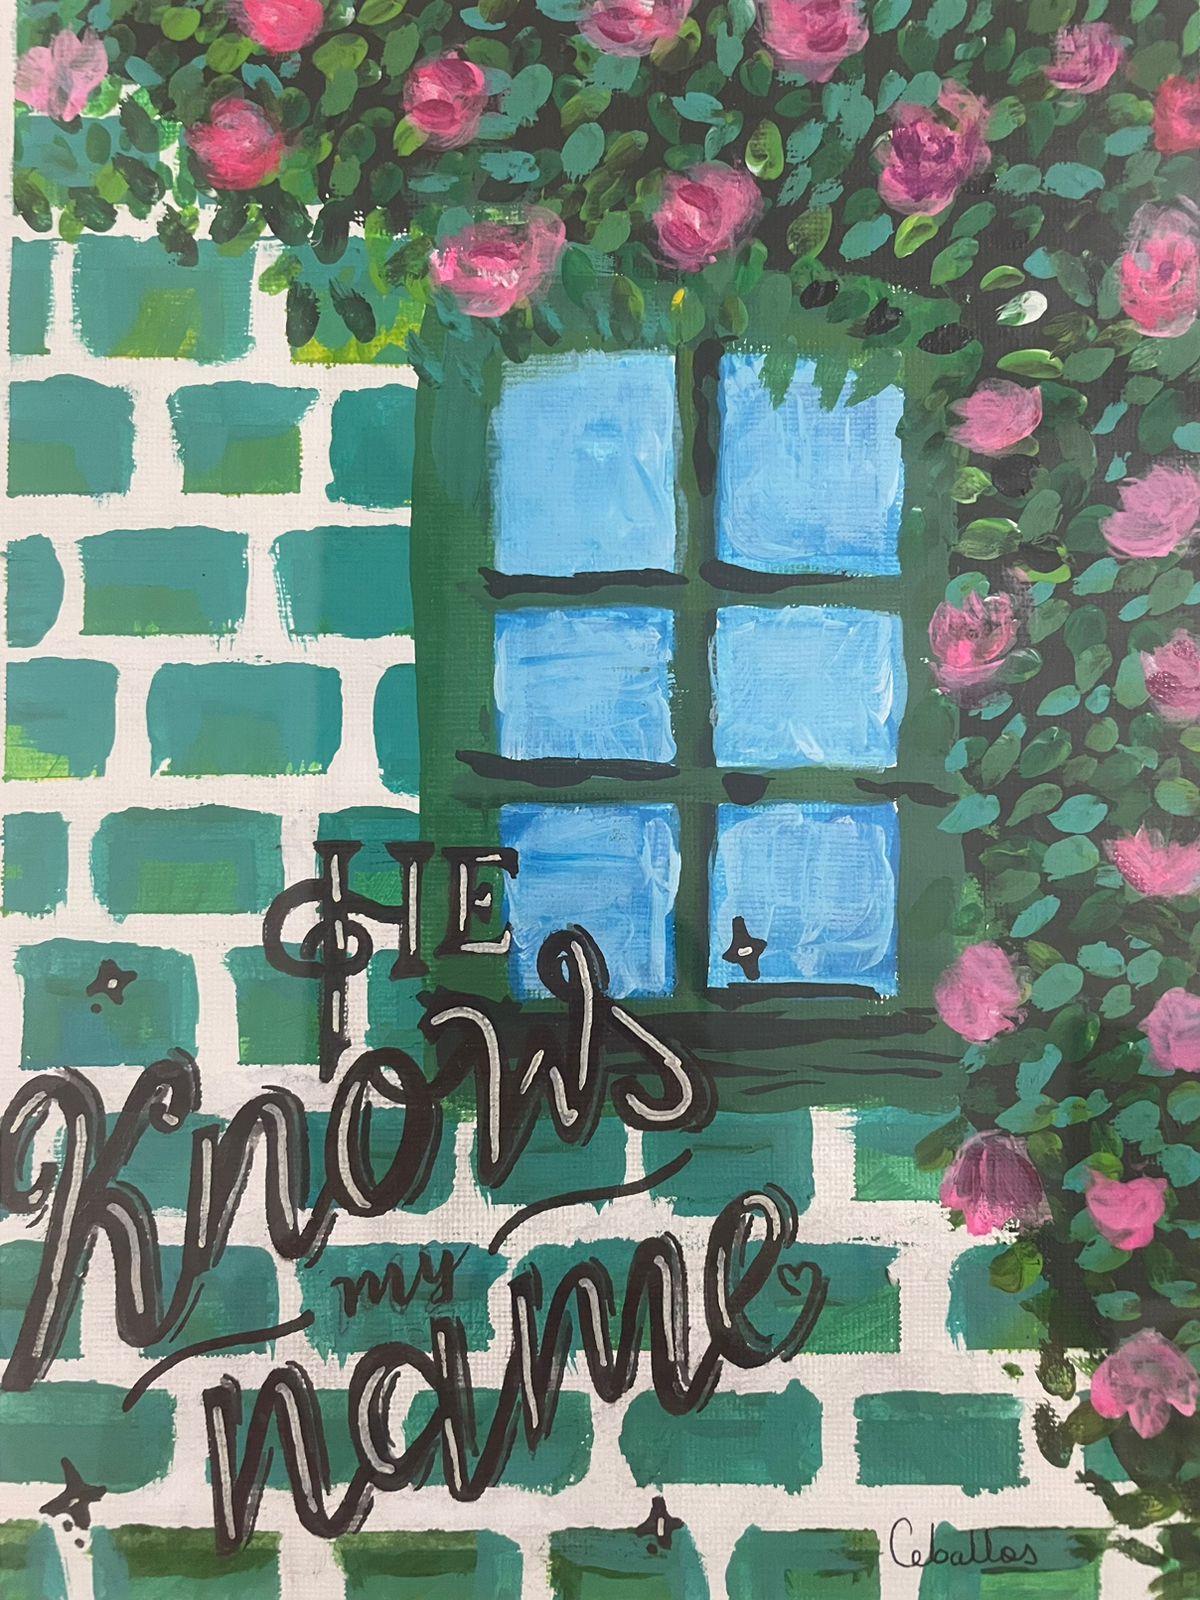 HE
Knows
my
name
Ceballos